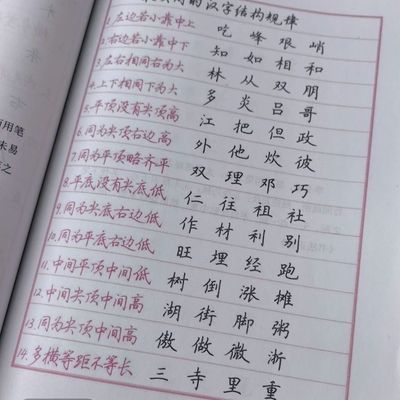 的汉字结构规律
1.左边若小靠中上 吃 峰 艰 峭
2.右边若小靠中下 知 如 相 和
3.左右相同右为大 林 从 双 朋
4.上下相同下为大 多 炎 吕 哥
5.平顶没有尖顶高 江 把 但 政
6.同为尖顶右边高 外 他 炊 彼
7.同为平顶略齐平 双 理 邓 巧
8.平底没有尖底低 仁 往 祖 社
9.同为尖底右边低 作 材 利 别
10.同为平底右边低 旺 埋 经 跑
11.中间平顶中间低 树 倒 涨 摊
12.中间尖顶中间高 湖 街 脚 粥
13.同为尖顶中间高 傲 做 微 浙
14.多横等距不等长 三 寺 里 重
用笔
未易
之